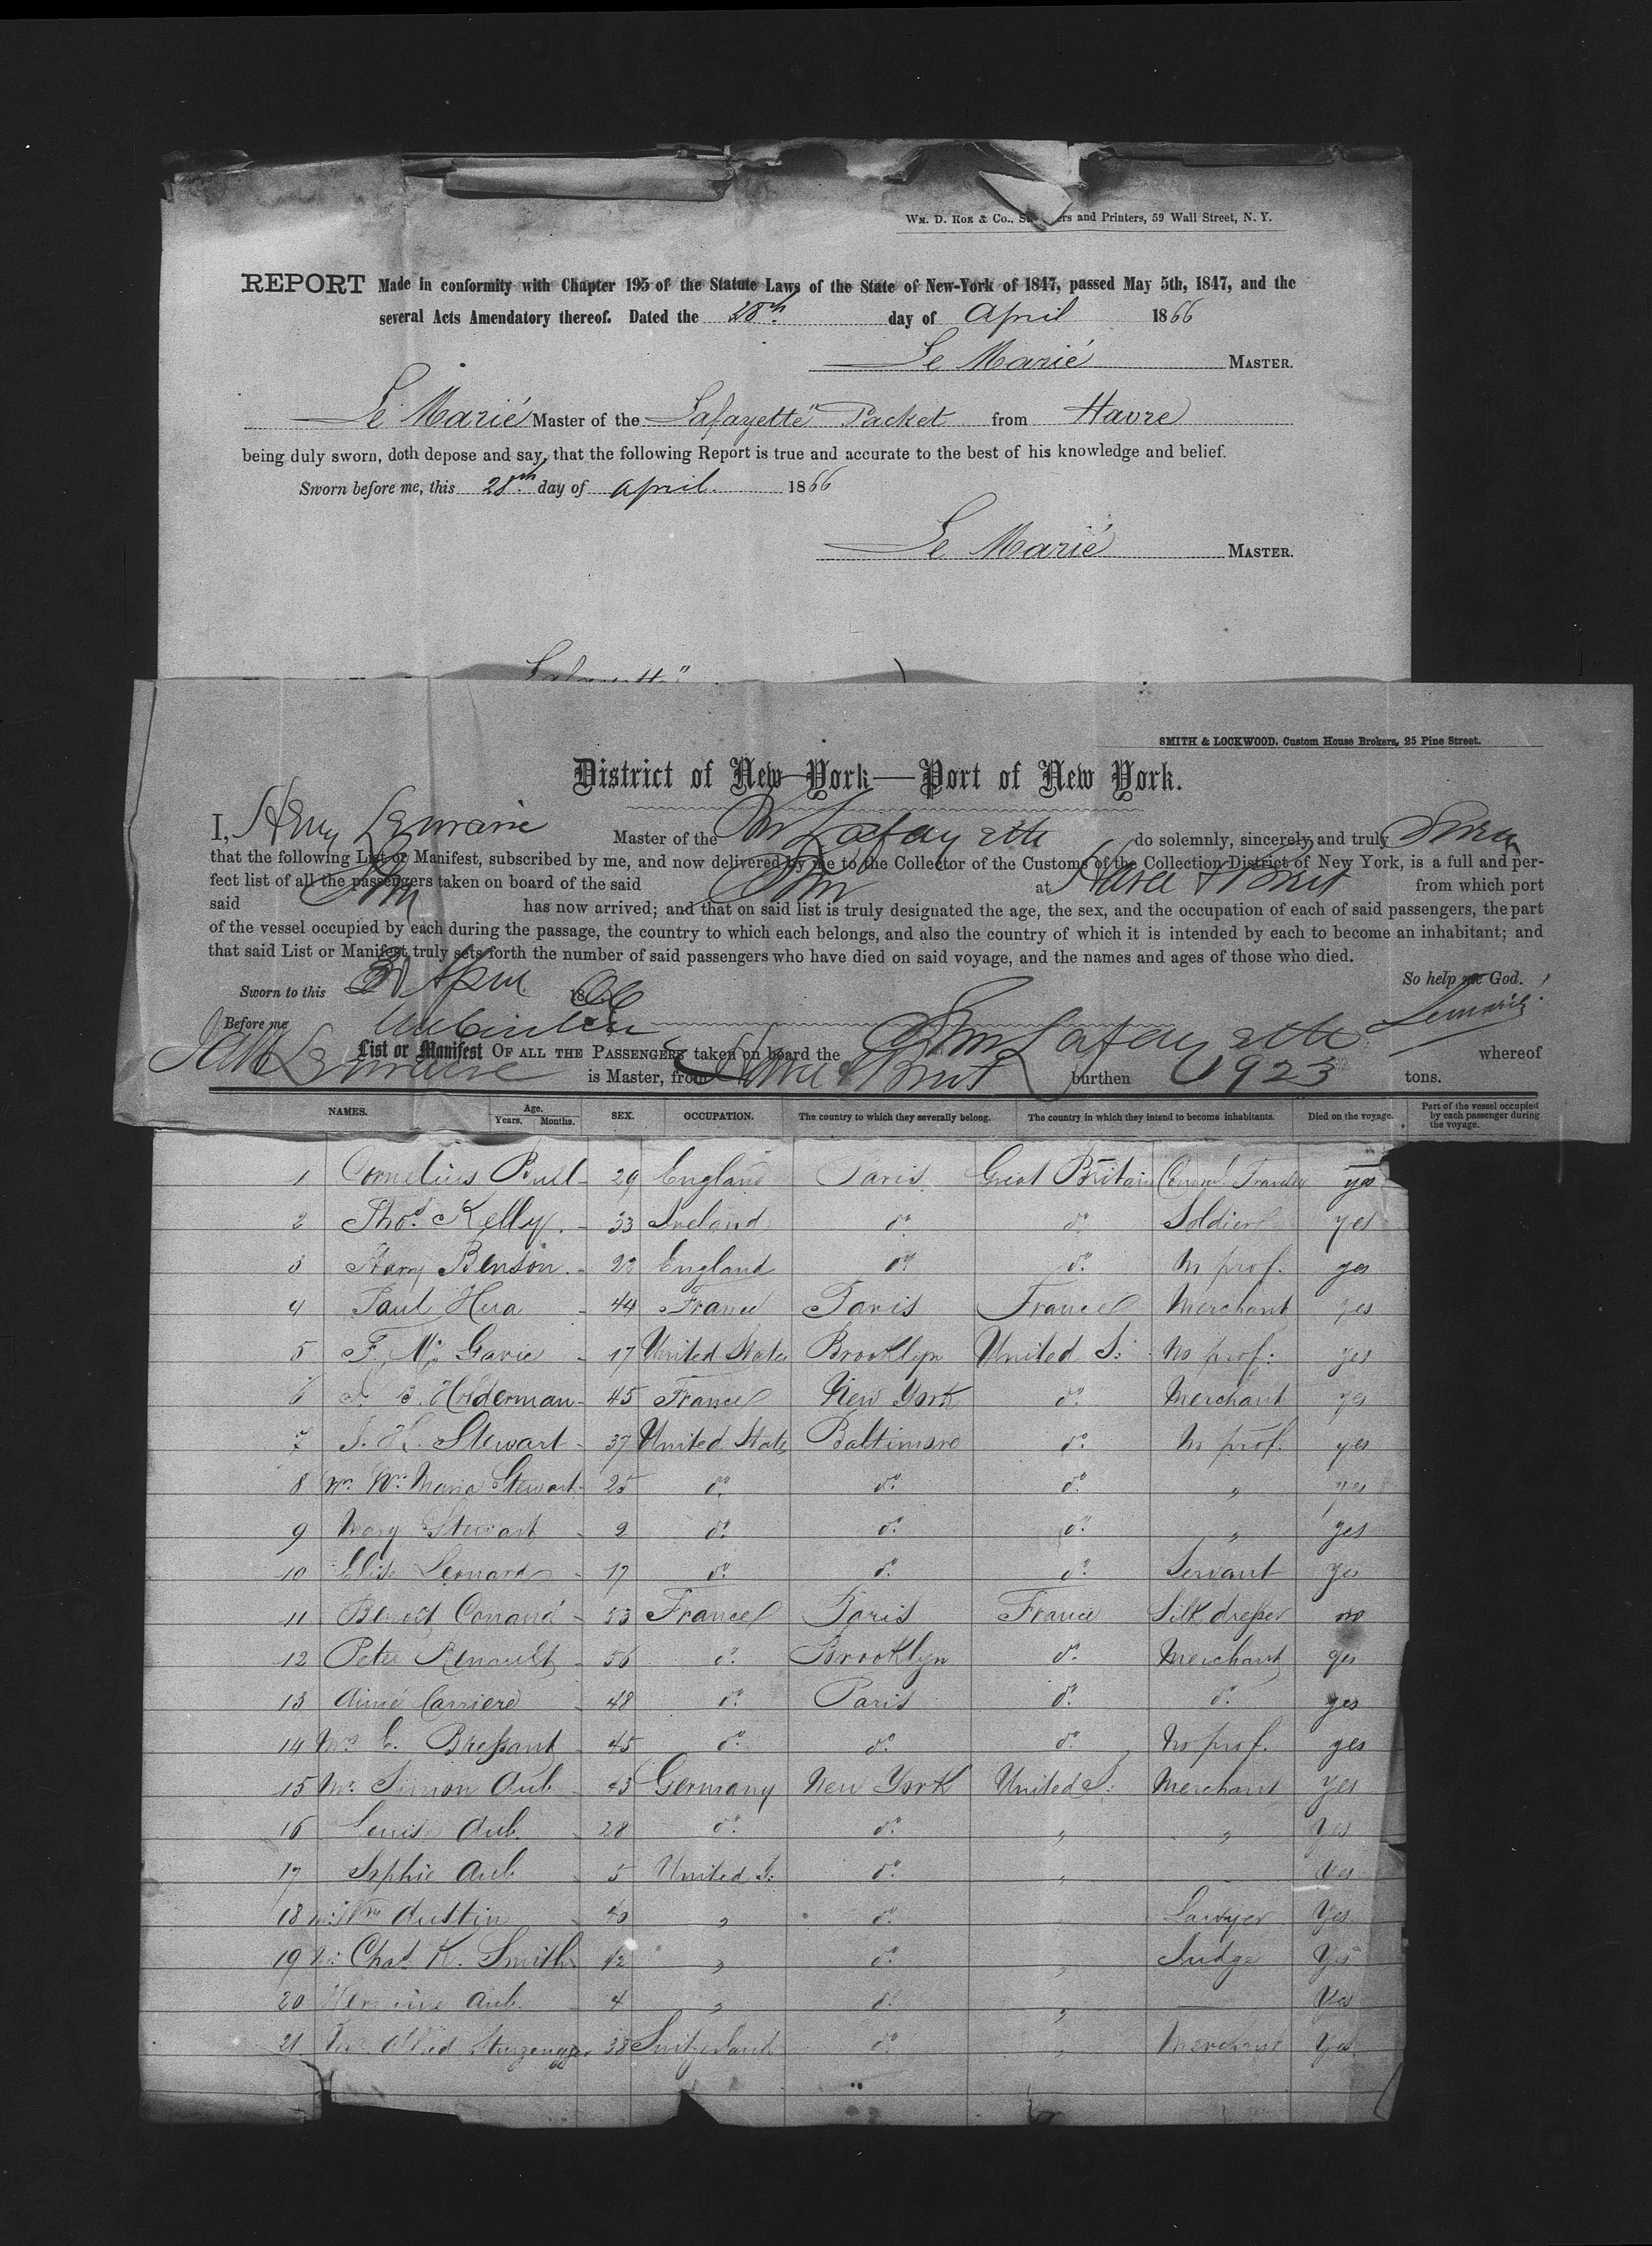 WM. D. ROE & CO., ers and Printers, 59 Wall Street, N. Y.
REPORT Made in conformity with Chapter 195 of the Statute Laws of the State of New-York of 1847, passed May 5th, 1847, and the
several Acts Amendatory thereof. Dated the 28th day of April 1866
Le Marié MASTER.
Le Marié Master of the "Lafayette" Packet from Havre
being duly sworn, doth depose and say, that the following Report is true and accurate to the best of his knowledge and belief.
Sworn before me, this 28th day of April 1866
Le Marié MASTER.
SMITH & LOCKWOOD, Custom House Brokers, 25 Pine Street.
District of New York—Port of New York.
I, Henry Master of the Lafayette do solemnly, sincerely and truly Swear
that the following List or Manifest, subscribed by me, and now delivered by me to the Collector of the Customs of the Collection District of New York, is a full and per-
fect list of all the passengers taken on board of the said Str at Havre & Brest from which port
said Str has now arrived; and that on said list is truly designated the age, the sex, and the occupation of each of said passengers, the part
of the vessel occupied by each during the passage, the country to which each belongs, and also the country of which it is intended by each to become an inhabitant; and
that said List or Manifest truly sets forth the number of said passengers who have died on said voyage, and the names and ages of those who died.
So help me God.
Sworn to this April 1866
Before me Lemarié
List or Manifest OF ALL THE PASSENGERS taken on board the Str Lafayette whereof
is Master, from Havre & Brest burthen 1923 tons.
NAMES. Age. Years. Months. SEX. OCCUPATION. The country to which they severally belong. The country in which they intend to become inhabitants. Died on the voyage. Part of the vessel occupied by each passenger during the voyage.
1 Cornelius Bull 29 England Paris Great Britain Comml. Traveler yes
2 Thos. Kelly 33 Ireland do. do. Soldier yes
3 Harry Benson 22 England do. do. No prof. yes
4 Paul Hera 44 France Paris France Merchant yes
5 F. Mc Gavic 17 United States Brooklyn United S: No prof. yes
6 Holderman 45 France New York do. Merchant yes
7 J. H. Stewart 37 United States Baltimore do. No prof. yes
8 Maria Stewart 25 do. do. do. " yes
9 Mary Stewart 2 do. do. do. " yes
10 Elise Leonard 17 do. do. do. Servant yes
11 Benoit Conand 53 France Paris France Silk dresser no
12 Peter Renault 56 do. Brooklyn do. Merchant yes
13 Aimé Carriere 48 do. Paris do. do. yes
14 Mrs E. Bressant 45 do. do. do. No prof. yes
15 Mr. Simon Aub 43 Germany New York United S: Merchant yes
16 Louis Aub 28 do. do. " " yes
17 Sophie Aub 5 United S: do. " yes
18 Wm Austin 40 " do. " Lawyer yes
19 Chas. K. Smith 42 " do. " Judge yes
20 Hermine Aub. 4 " do. " yes
21 38 Switzerland do. " Merchant yes